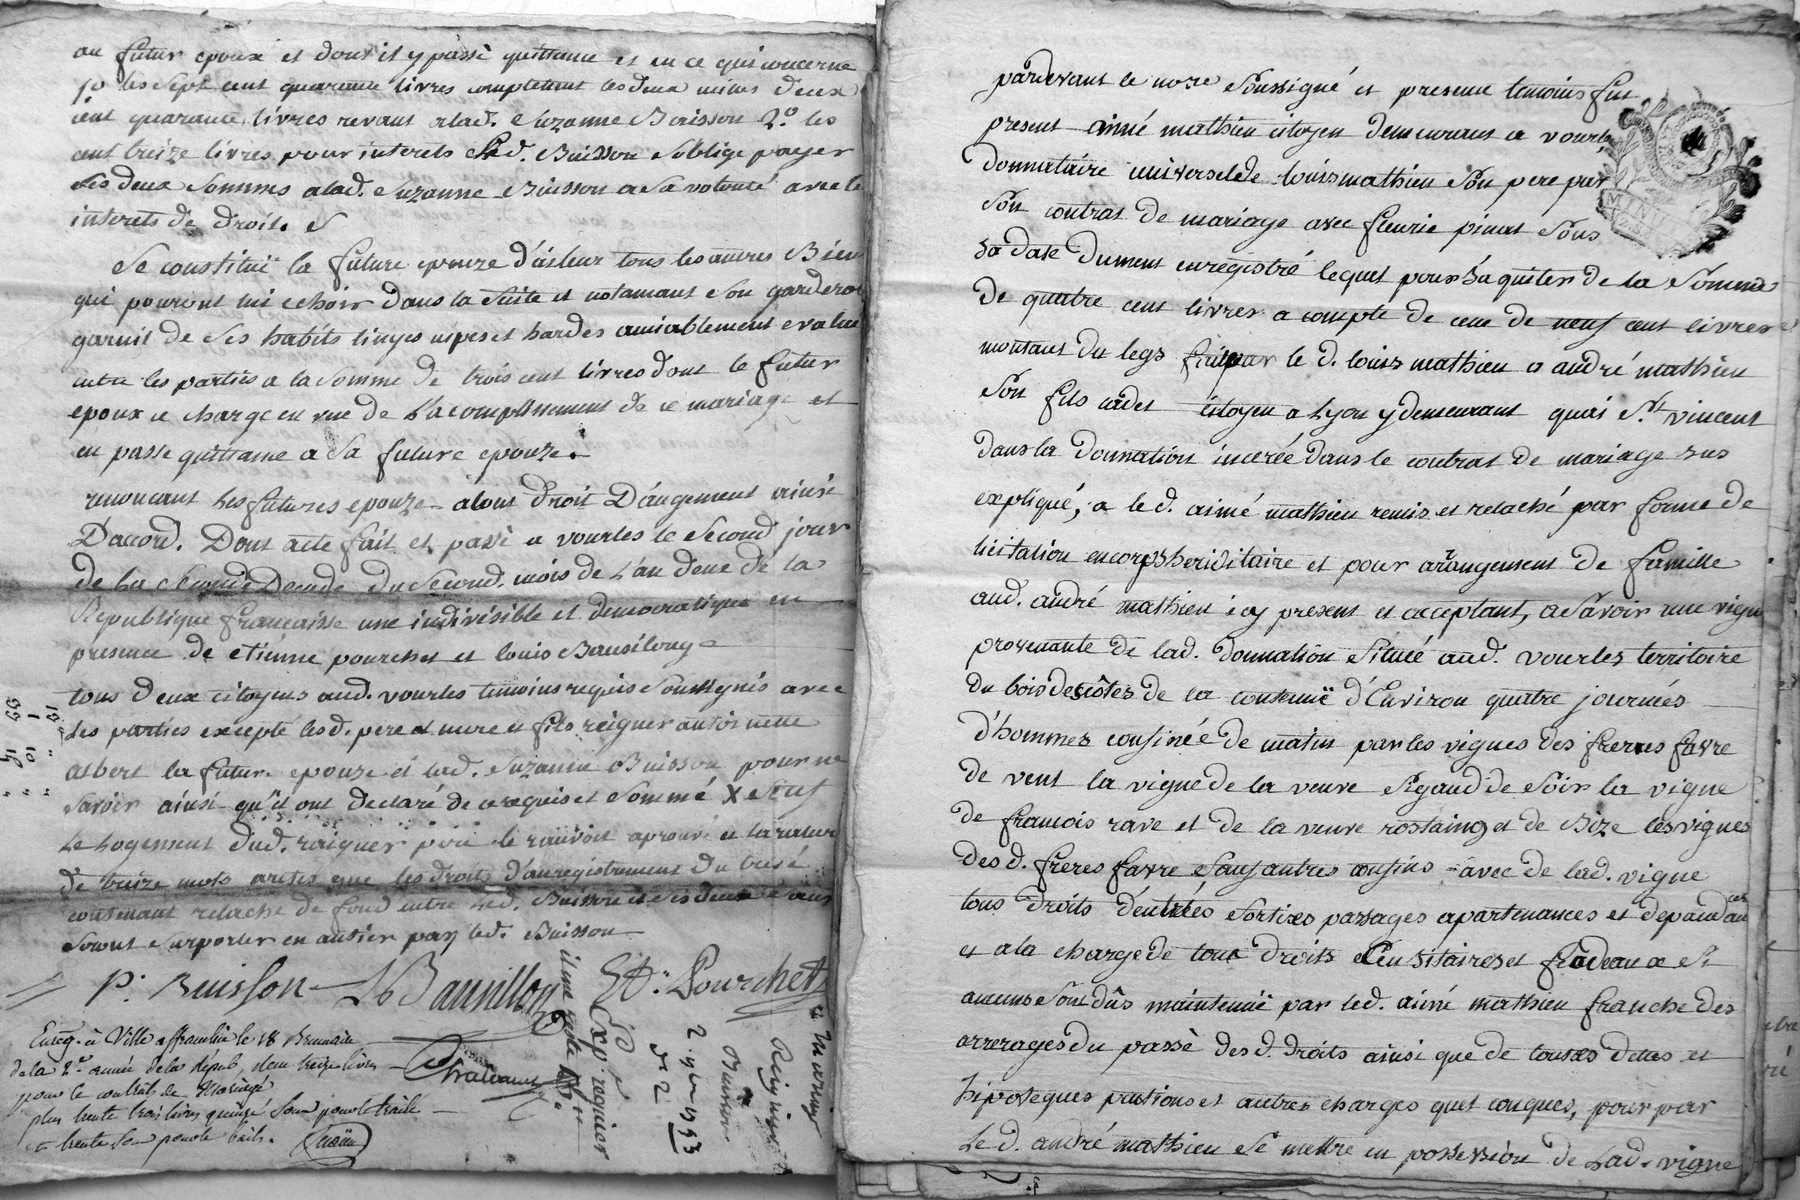 au futur epoux et dont il y passé quittance et en ce qui concerne
1º les sept cent quarante livres completant les deux milles deux
cent quarante livres revant alad. Suzanne Buisson 2º les
cent treize livres pour interets led. Buisson soblige payer
les deux sommes alad. Suzanne Buisson a sa volonté avec le
interets de droit.
Se constitüe la future epouze d'ailleur tous les autres Bien
qui pouront lui echoir dans la suite et notamant son garderob
garnit de ses habits linges nipes et hardes amiablement evalue
entre les parties a la somme de trois cent livres dont le futur
epoux se charge en vue de l'acomplissement de ce mariage et
en passe quittance a sa future epouze.
renoncant les futures epouze alous droit D'augement ainsi
D'accord. Dont acte fait et passé a vourles le second jour
de la seconde Decade du second mois de l'an deux de la
Republique francaisse une indivisible et democratique en
presence de etienne pourchet et louis
tous deux citoyens aud. vourles temoins requis soussignés avec
les parties excepté lesd. pere et mere et fils reigner antoinette
albert la future epouze et lad. Suzanne Buisson pour ne
savoir ainsi qu'il ont declaré de ce requis et sommé X
le logement dud. raigner
de treize mots arestes que les droits d'anregistrement du
contenant relache de fond entre led. Buisson et ses deux
seront surporter en antier par led. Buisson
P. Buisson LB Pourchet
Enreg. à Ville affranchie le 18 Brumaire
de la 2e année de la Répub,
pour le contrat de Mariage
plus trente trois livres quinze sous pour le traité
trente sous pour le bail.
Exp. requier
2 9bre 1793
pardevant le nore soussigné et presens temoins fut
present aimé mathieu citoyen demeurant a vourles
donnataire universel de louis mathieu son pere par
son contrat de mariage avec fleurie pinat sous
sa date dument enregistré lequel pour saquiter de la somme
de quatre cent livres a compte de ceue de neuf cent livres
montant du legs fait par le d. louis mathieu a andré mathieu
son fils cadet citoyen a Lyon y demeurant quai St. vincent
dans la donnation incerée dans le contrat de mariage sus
expliqué, a le d. aimé mathieu remis et relaché par forme de
licitation en corps heriditaire et pour arangement de famille
aud. andré mathieu icy present et acceptant, a savoir une vigne
provenante de lad. donnation située aud. vourles territoire
du bois des côtes de la contenuë d'Environ quatre journées
d'hommes confinée de matin par les vignes des freres favre
de vent la vigne de la veuve Rigaud de soir la vigne
de francois rave et de la veuve rostaing et de Bize les vignes
des d. freres favre sauf autres confins avec de lad. vigne
tous droits d'entrés sorties passages apartenances et depandances
et ala charge de tous droits censitaires et fradeaux si
aucuns sont dûs maintenüe par led. aimé mathieu franche des
arrerages du passé des d. droits ainsi que de toutes dettes et
hipoteques pantions et autres charges quel conques, pour par
le d. andré mathieu se mettre en possession de lad. vigne